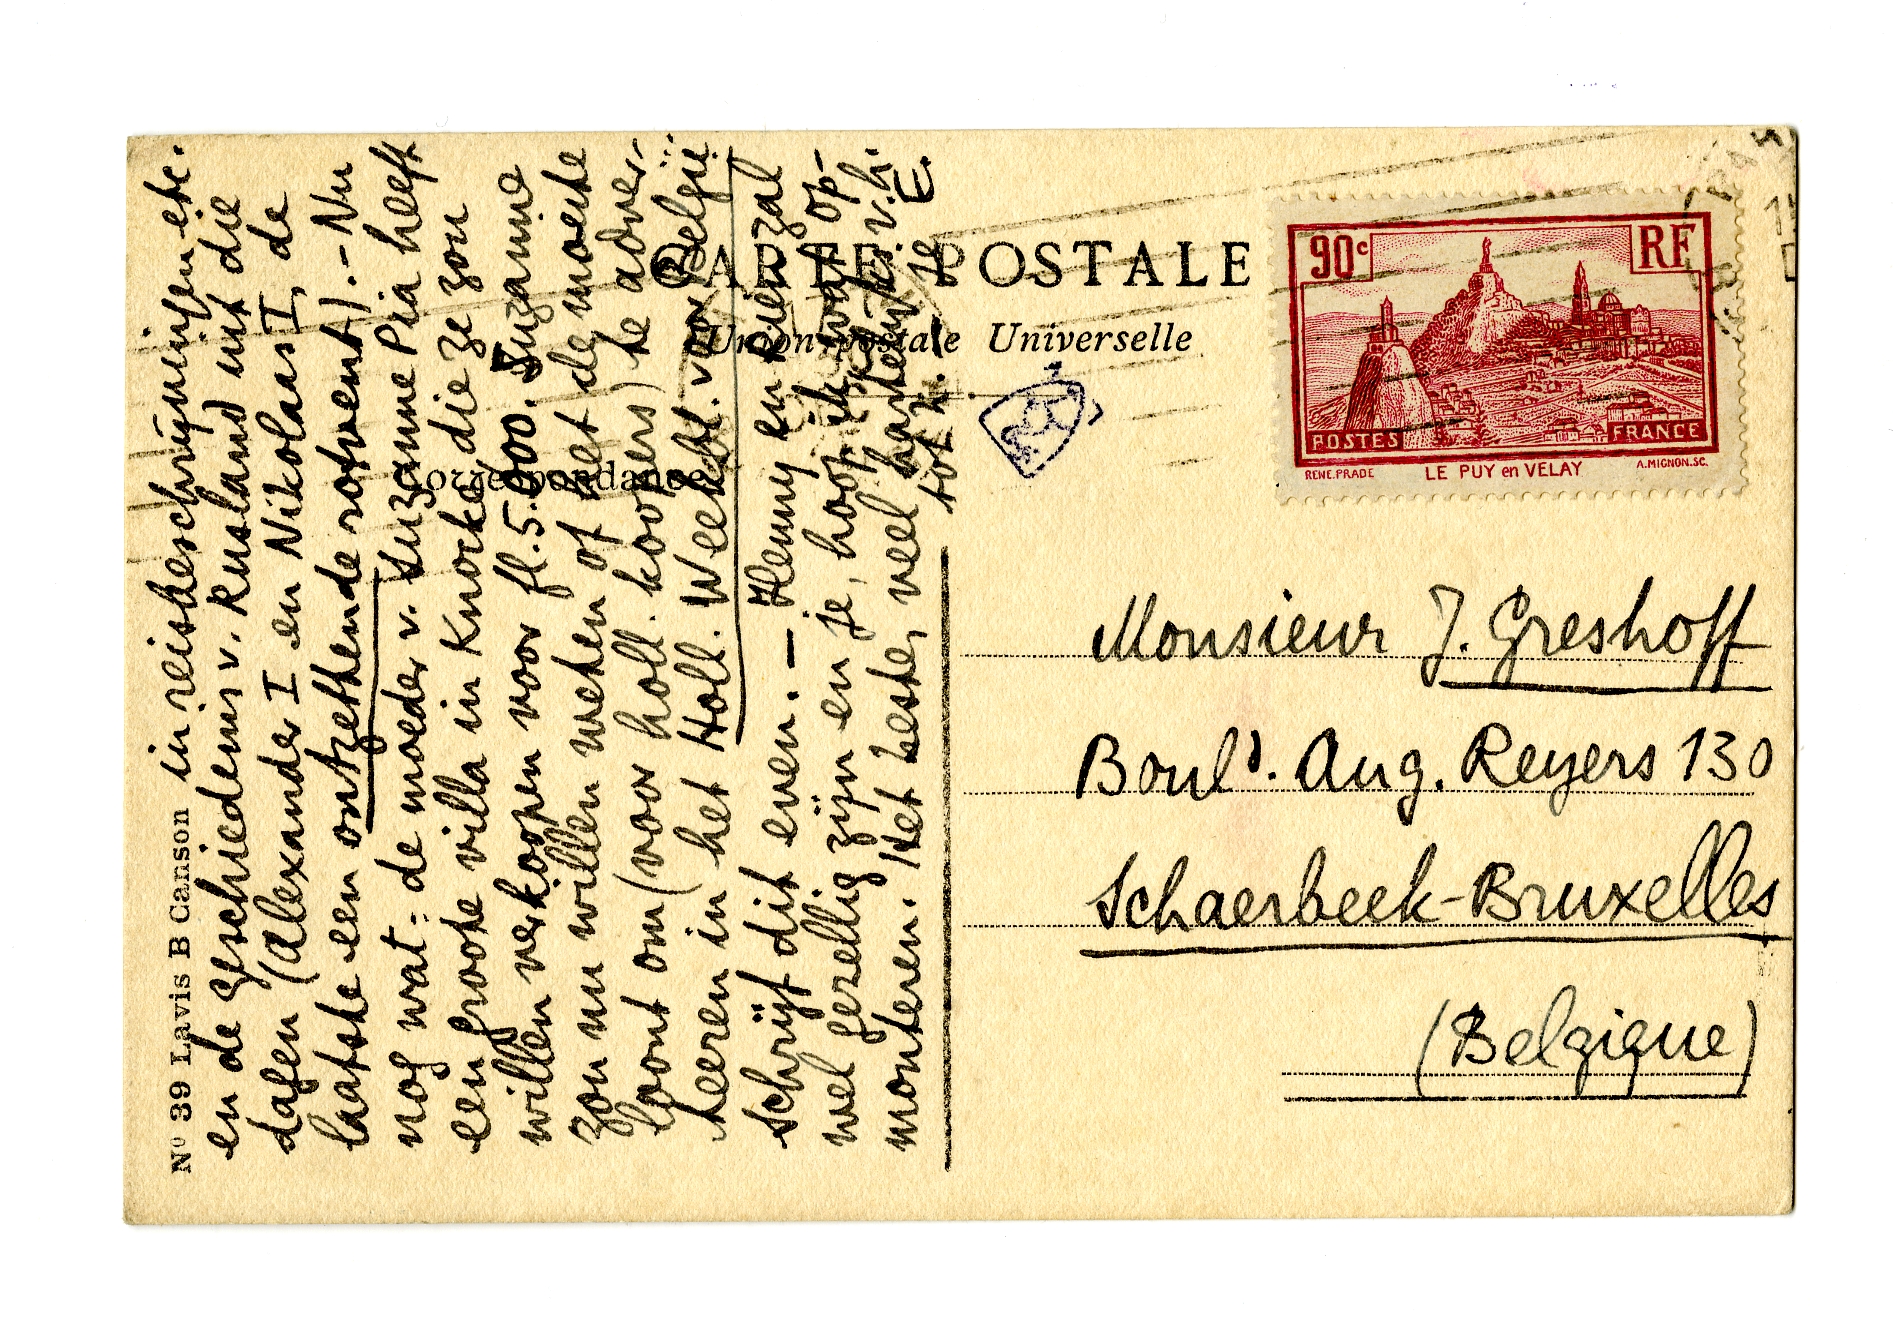 in reisbeschrijvingen etc.
en de geschiedenis v. Rusland uit die
dagen (Alexander I en Nikolaas I, de
laatste een ontzettende rotvent). - Nu
nog wat: de moeder v. Suzanne Pia heeft
een groote villa in Knocke die ze zou
willen verkoopen voor fl. 5.000. Suzanne
zou nu willen weten of het de moeite
loont om (voor holl. koopers) te adver-
teeren in het Holl. Weekbl. voor België.
Schrijf dit even. — Henny en hier zal
wel gezellig zijn en je, hoop ik, wat op-
monteren. Het beste, veel hartelijks v. h.
tot n. te E.
Nº 39 Lavis B Canson
CARTE POSTALE
Union postale Universelle
Correspondance
90c
RF
POSTES
FRANCE
RENE.PRADE
LE PUY en VELAY
A.MIGNON.SC.
Monsieur J. Greshoff
Boulᵈ. Aug. Reyers 130
Schaerbeek-Bruxelles
(Belgique)